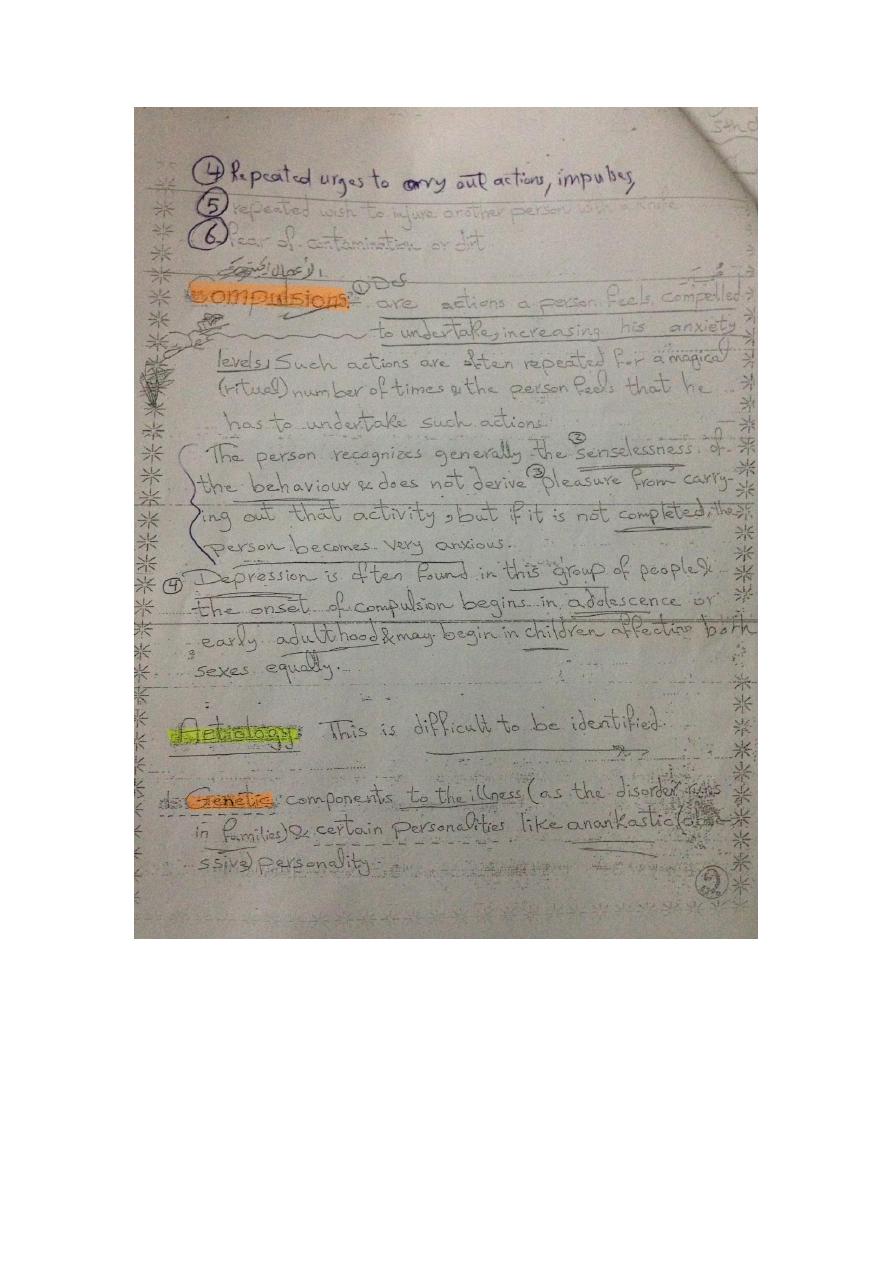 5thd
④ Repeated urges to carry out actions, impulses,
⑤ repeated wish to injure another person with a knife
⑥ fear of contamination or dirt
① Def
Compulsions:- are actions a person feels compelled
to undertake, increasing his anxiety
levels, Such actions are often repeated for a magical
(ritual) number of times & the person feels that he
has to undertake such actions.
The person recognizes generally the ② senselessness of
the behaviour & does not derive ③ pleasure from carry-
ing out that activity, but if it is not completed, the
person becomes very anxious.
④ Depression is often found in this group of people &
the onset of compulsion begins in adolescence or
early adulthood & may begin in children affecting both
sexes equally.
Aetiology: This is difficult to be identified.
Genetic components to the illness (as the disorder runs
in families) & certain personalities like anankastic (obse-
ssive) personality.